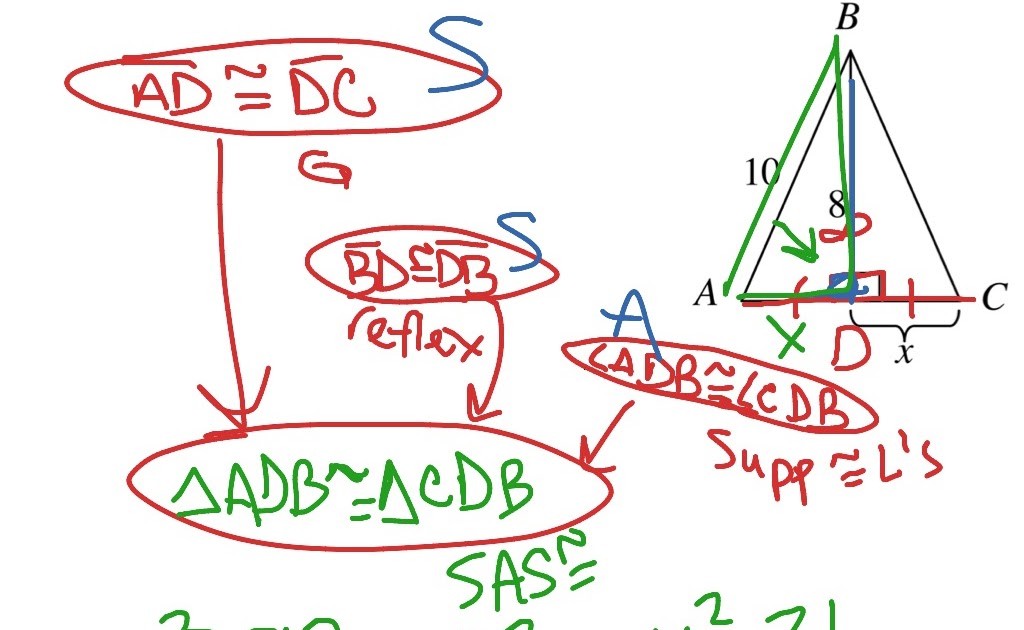 AD ≅ DC S
G
BD ≅ DB S
reflex
A
∠ADB ≅ ∠CDB
Supp ≅ ∠'s
△ADB ≅ △CDB
SAS ≅
B
10
8
A
C
x
D
x